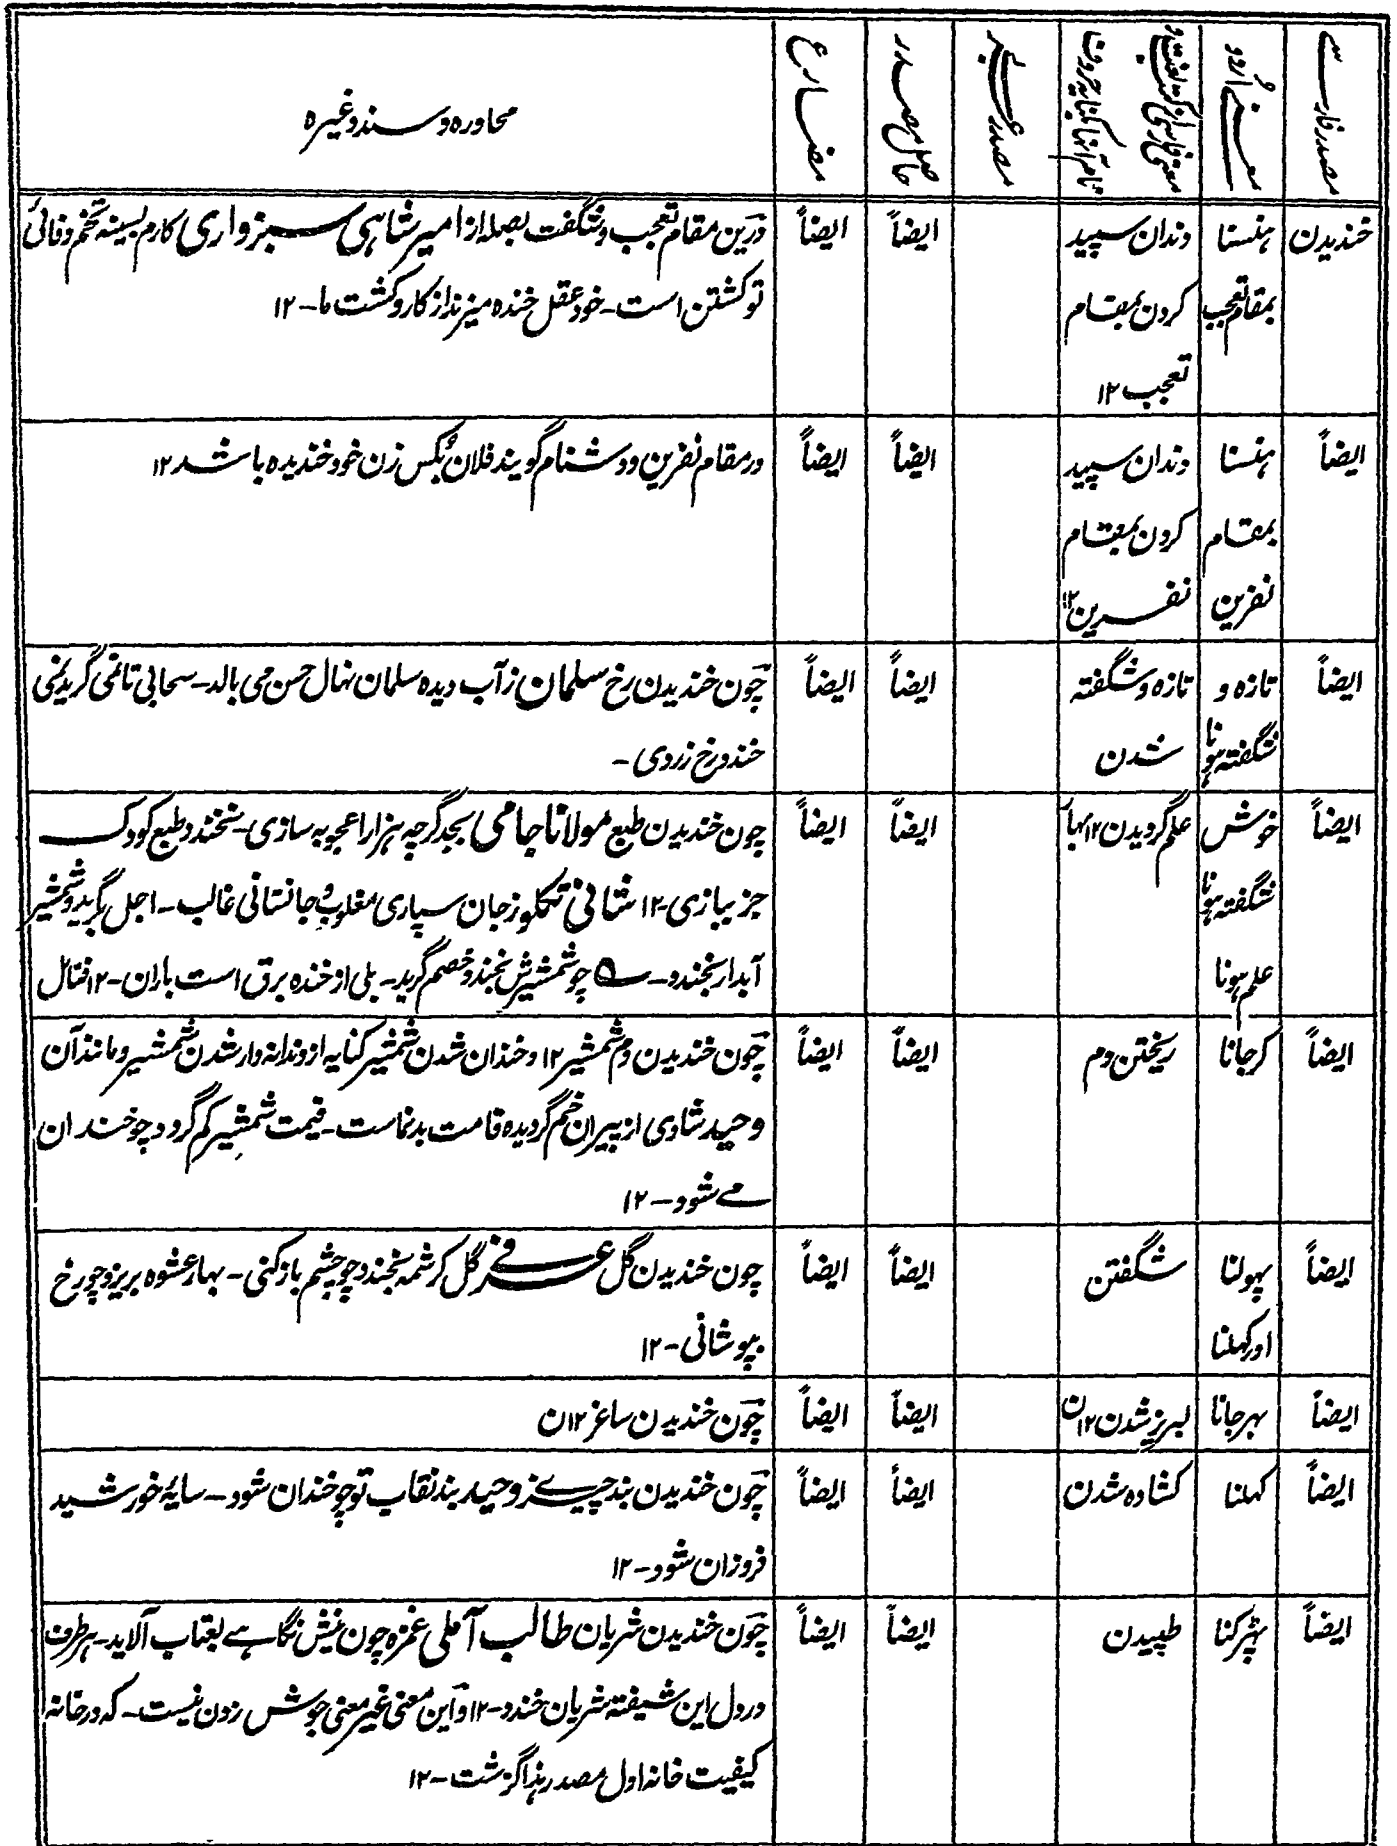 مصدر فارسے | معنے اردو | معنی فارسی کتب لغت و نام آنها کنایه حروف | مصدر عربی | حاصل مصدر | مضارع | محاوره و سند وغیره
خندیدن | ہنسنا | دندان سپید | ایضاً | ایضاً | درین مقام تعجب و شگفت بصلہ از امیر شاہی سبزواری کارم بسینہ تخم وفائی
بمقام تعجب | کردن بمقام | تو کشتن است - خود عقل خنده میزند از کار و کشت ما - ۱۲
تعجب ۱۲
ایضاً | ہنسنا | دندان سپید | ایضاً | ایضاً | در مقام نفرین و دشنام گویند فلان بکس زن خود خندیده باشد ۱۲
بمقام | کردن بمقام
نفرین | نفرین ۱۲
ایضاً | تازه و | تازه و شگفته | ایضاً | ایضاً | چون خندیدن رخ سلمان ز آب دیده سلمان نهال حسن می بالد - سحابی تا نمی گرید نمی
شگفتہ ہونا | شدن | خندد رخ زردی -
ایضاً | خوش | علم گردیدن ۱۲ بہا | ایضاً | ایضاً | چون خندیدن طبع مولانا جامی بجد گرچہ ہزار اعجوبہ سازی - نخندد طبع کودک
شگفتہ ہونا | جز ببازی - ۱۲ شانی تکلو ز جان سپاری مغلوب و جانستانی غالب - اجل بگرید و شمشیر
علم ہونا | آبدار بخندد - چو شمشیرش بخندد خصم گرید - بلی از خنده برق است باران - ۱۲
ایضاً | کرجانا | ریختن دم | ایضاً | ایضاً | چون خندیدن دم شمشیر ۱۲ و خندان شدن شمشیر کنایہ از دندانہ دار شدن شمشیر و مانند آن
وحید شادی از پیران خم گردیده قامت بدنماست - قیمت شمشیر کم گردد چو خندان
مے شود - ۱۲
ایضاً | پہولنا | شگفتن | ایضاً | ایضاً | چون خندیدن گل عرفی گل کرشمہ بخندد چو چشم باز کنی - بہار عشوه بریزد چو رخ
اور کہلنا | بپوشانی - ۱۲
ایضاً | بہرجانا | لبریز شدن ۱۲ ن | ایضاً | ایضاً | چون خندیدن ساغر ۱۲ ن
ایضاً | کہلنا | کشاده شدن | ایضاً | ایضاً | چون خندیدن بند چیزے وحید بند نقاب تو چو خندان شود - سایۂ خورشید
فروزان شود - ۱۲
ایضاً | پہڑکنا | طپیدن | ایضاً | ایضاً | چون خندیدن شریان طالب آملی غمزه چون نیش نگاہے بعتاب آلاید - ہر طرف
در دل این شیفتہ شریان خندد - ۱۲ و این معنی غیر معنی جوش زدن نیست - کہ در خانہ
کیفیت خانہ اول مصدر ہذا گزشت - ۱۲